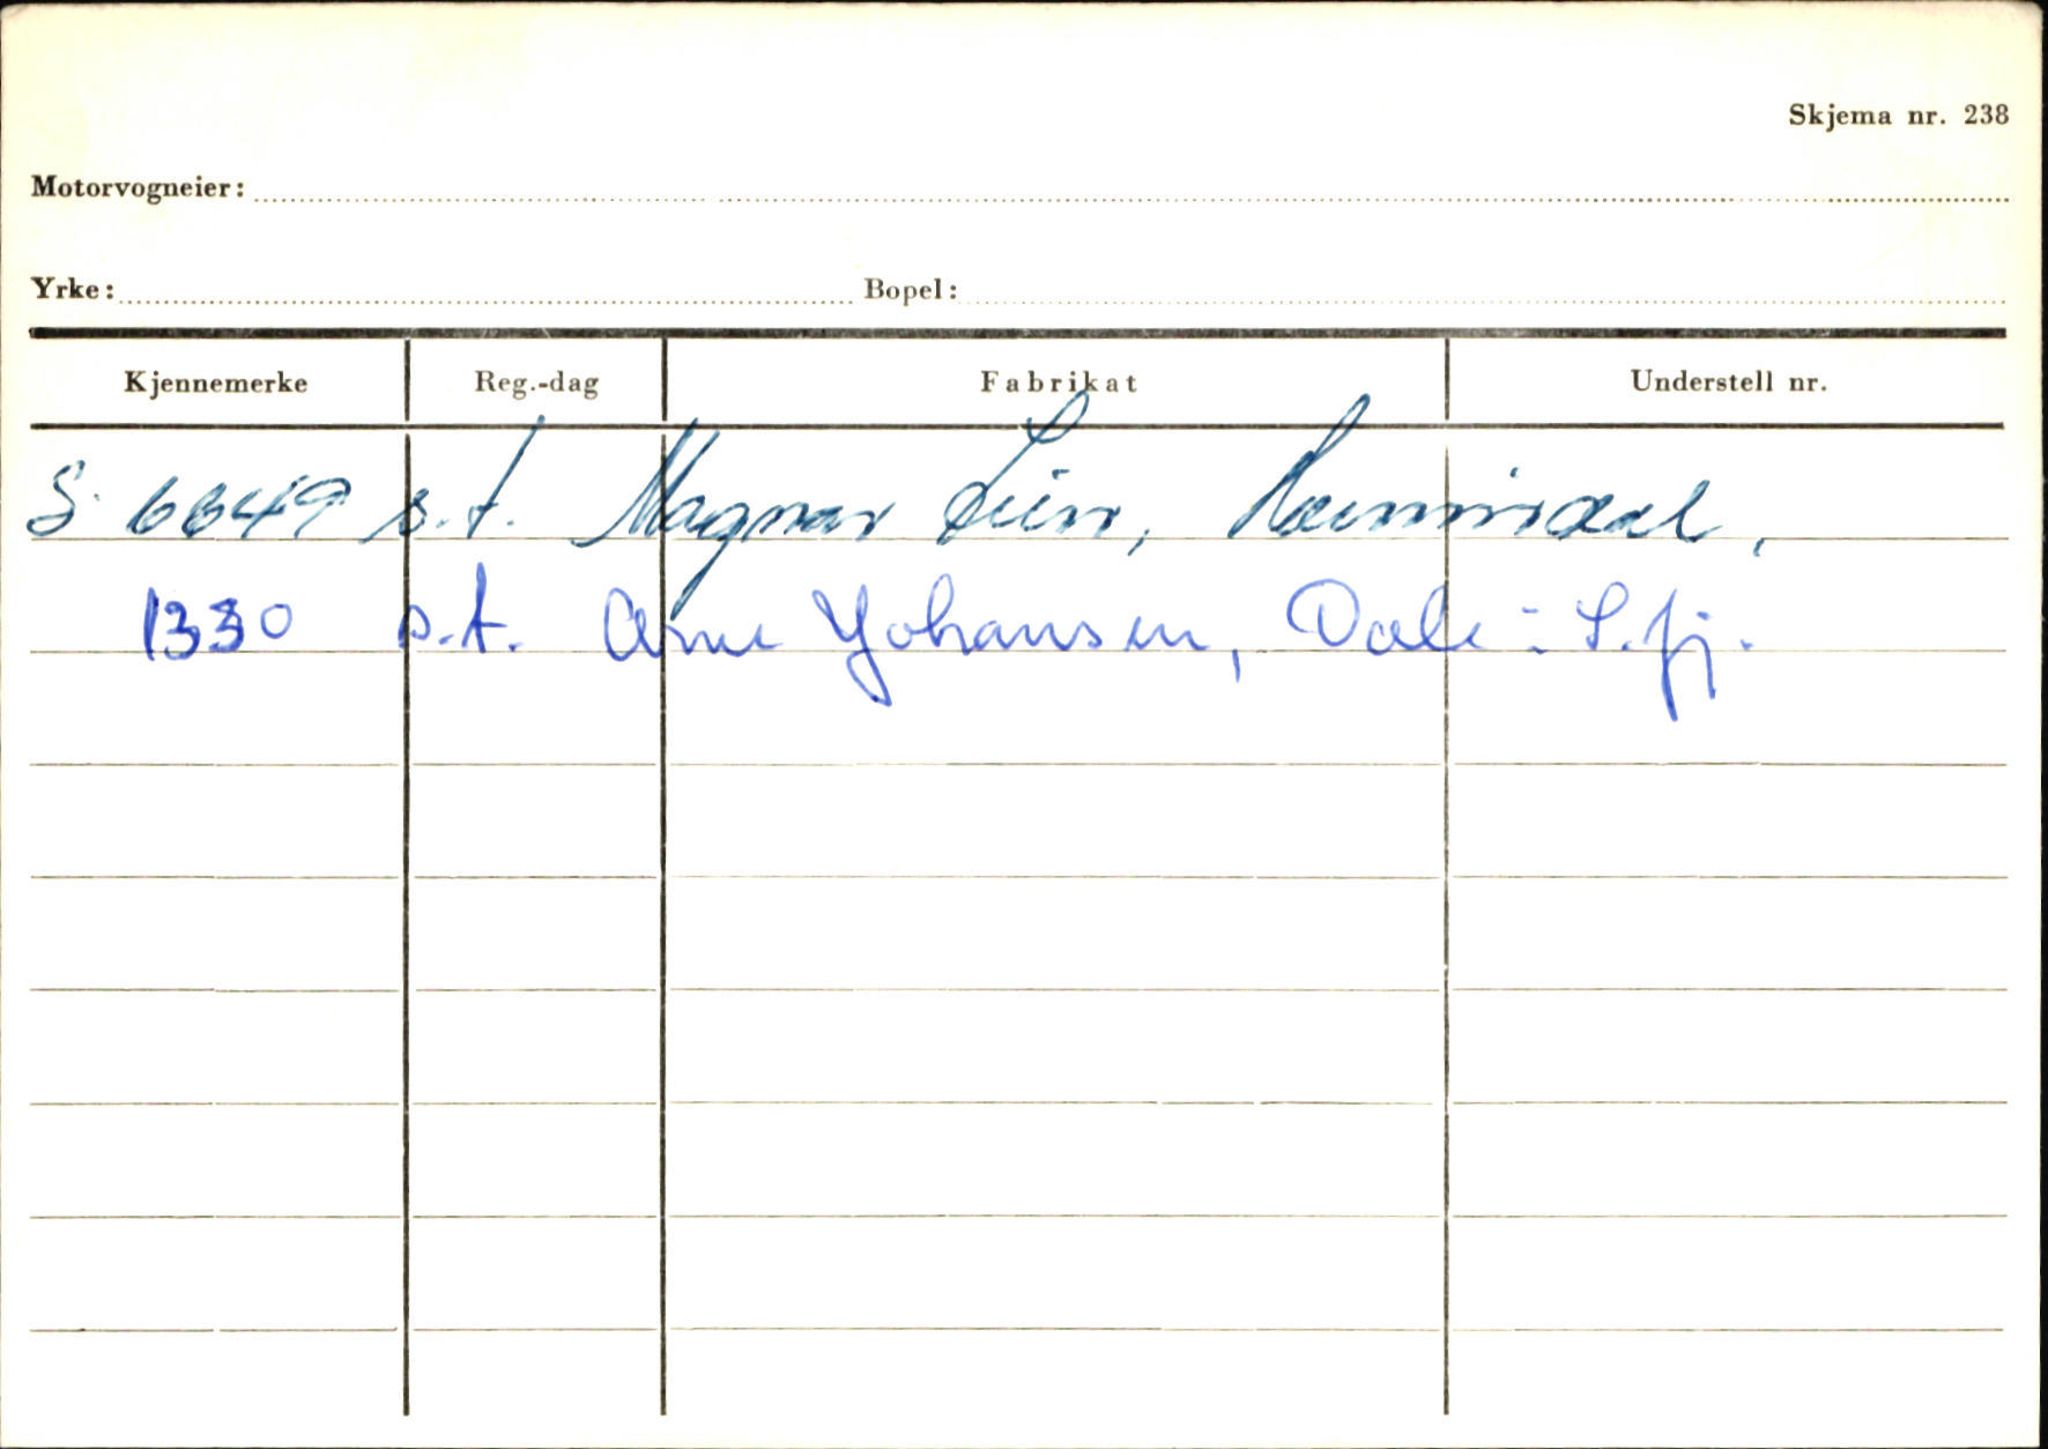 Skjema nr. 238
Motorvogneier:
Yrke: Bopel:
Kjennemerke Reg.-dag Fabrikat Understell nr.
S. 6649 s.t. Magnar
1330 s.t. Arne Johansen, Dale i S.fj.